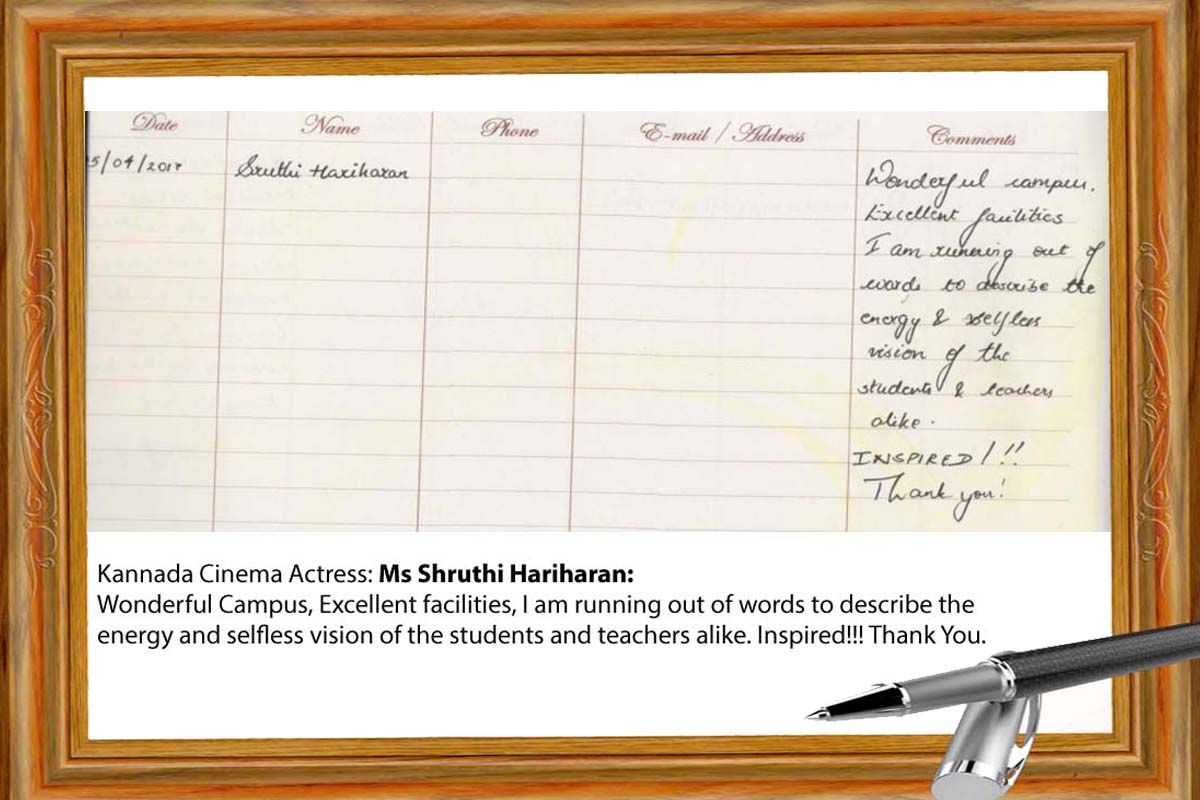 Date Name Phone E-mail / Address Comments
5/04/2017 Sruthi Hariharan Wonderful campus.
Excellent facilities
I am running out of
words to describe the
energy & selfless
vision of the
students & teachers
alike.
INSPIRED!!!
Thank you!
Kannada Cinema Actress: Ms Shruthi Hariharan:
Wonderful Campus, Excellent facilities, I am running out of words to describe the
energy and selfless vision of the students and teachers alike. Inspired!!! Thank You.